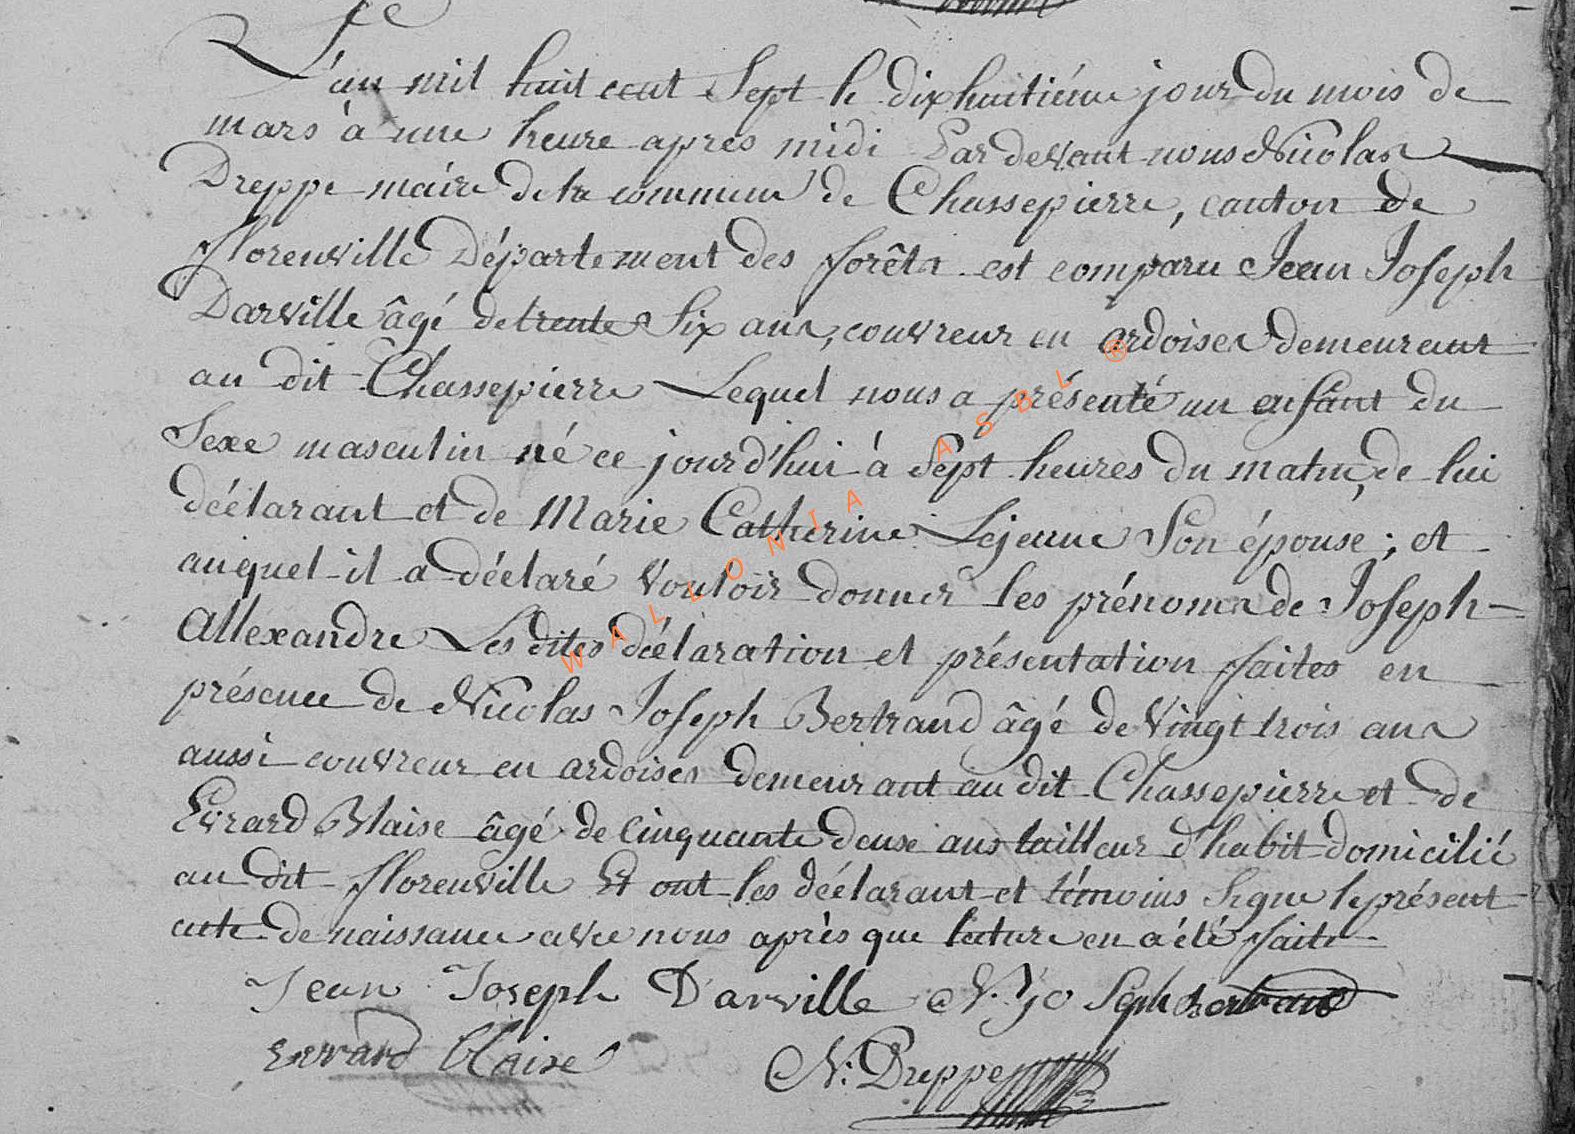 L'an mil huit cent Sept le dixhuitième jour du mois de
mars à une heure après midi Pardevant nous Nicolas
Dreppe maire de la commune de Chassepierre, canton de
florenville Département des forêts est comparu Jean Joseph
Darville âgé de trente Six ans, couvreur en ardoises demeurant
au dit Chassepierre Lequel nous a présenté un enfant du
Sexe masculin né ce jourd'hui à Sept heures du matin, de lui
déclarant et de Marie Catherine Lejeune Son épouse; et
auquel il a déclaré Vouloir donner les prénoms de Joseph
Allexandre Les dites déclaration et présentation faites en
présence de Nicolas Joseph Bertrand âgé de Vingt trois ans
aussi couvreur en ardoises demeurant au dit Chassepierre et de
Evrard Blaise âgé de Cinquante deuse ans tailleur d'habit domicilié
au dit florenville Et ont les déclarant et témoins Signe le présent
acte de naissance avec nous après que lecture en a été faite
Jean Joseph D'arville N. Jo Seph bertrand
Evrard blaise N: Dreppe
WALLONIA ASBL ®